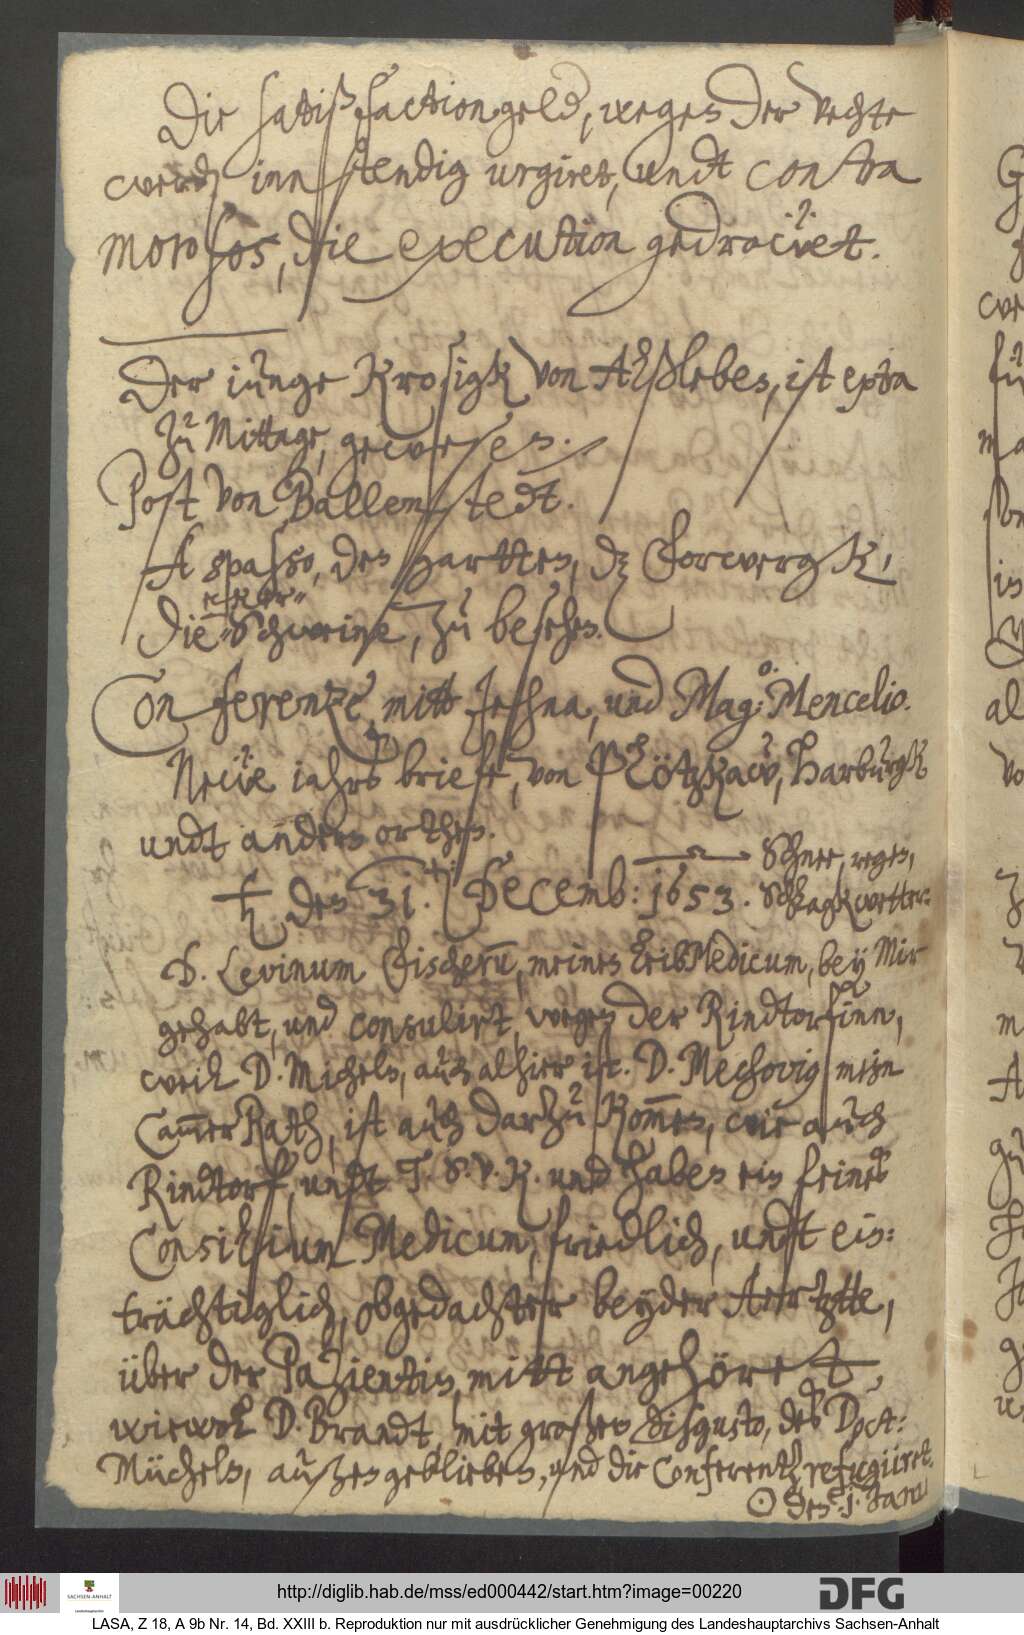 Die satißfactiongeld, wegen der Vechte
werden innstendig urgiret, undt contra
morosos, die execution gedroẅet.
Der iunge Krosigk von Alßleben, ist extra
zu Mittage, gewesen.
Post von Ballenstedt.
A spasso, den hartten, dz Vorwergk,
ecker
die Schweine, zu besehen.
Conferentze mitt Jehna, und Mag:o Mencelio.
Neẅe iahrs briefe, von Plötzkaw, Harburgk
undt andern orthen.
♄ den 31. Decemb: 1653. Schnee, regen,
Schlagkwetter.
D. Levinum Fischerum, meinen LeibMedicum, bey Mir
gehabt, und consulirt, wegen der Rindtorfinn,
weil D. Michels, auch alhier ist. D. Mechovig mein
CammerRath, ist auch darzu kommen, wie auch
Rindtorf, undt T. S. v. K. und haben ein feines
Consilium Medicum, friedlich, undt ein:
trächtiglich, obgedachter beyder Aertzte,
über der Pazientin, mitt angehöret,
wiewol D. Brandt, mit großem disgusto, des Doct:
Müchels, außengeblieben, und die Conferentz refugiiret.
☉ den 1. Janu
http://diglib.hab.de/mss/ed000442/start.htm?image=00220
DFG
SACHSEN-ANHALT
LASA, Z 18, A 9b Nr. 14, Bd. XXIII b. Reproduktion nur mit ausdrücklicher Genehmigung des Landeshauptarchivs Sachsen-Anhalt